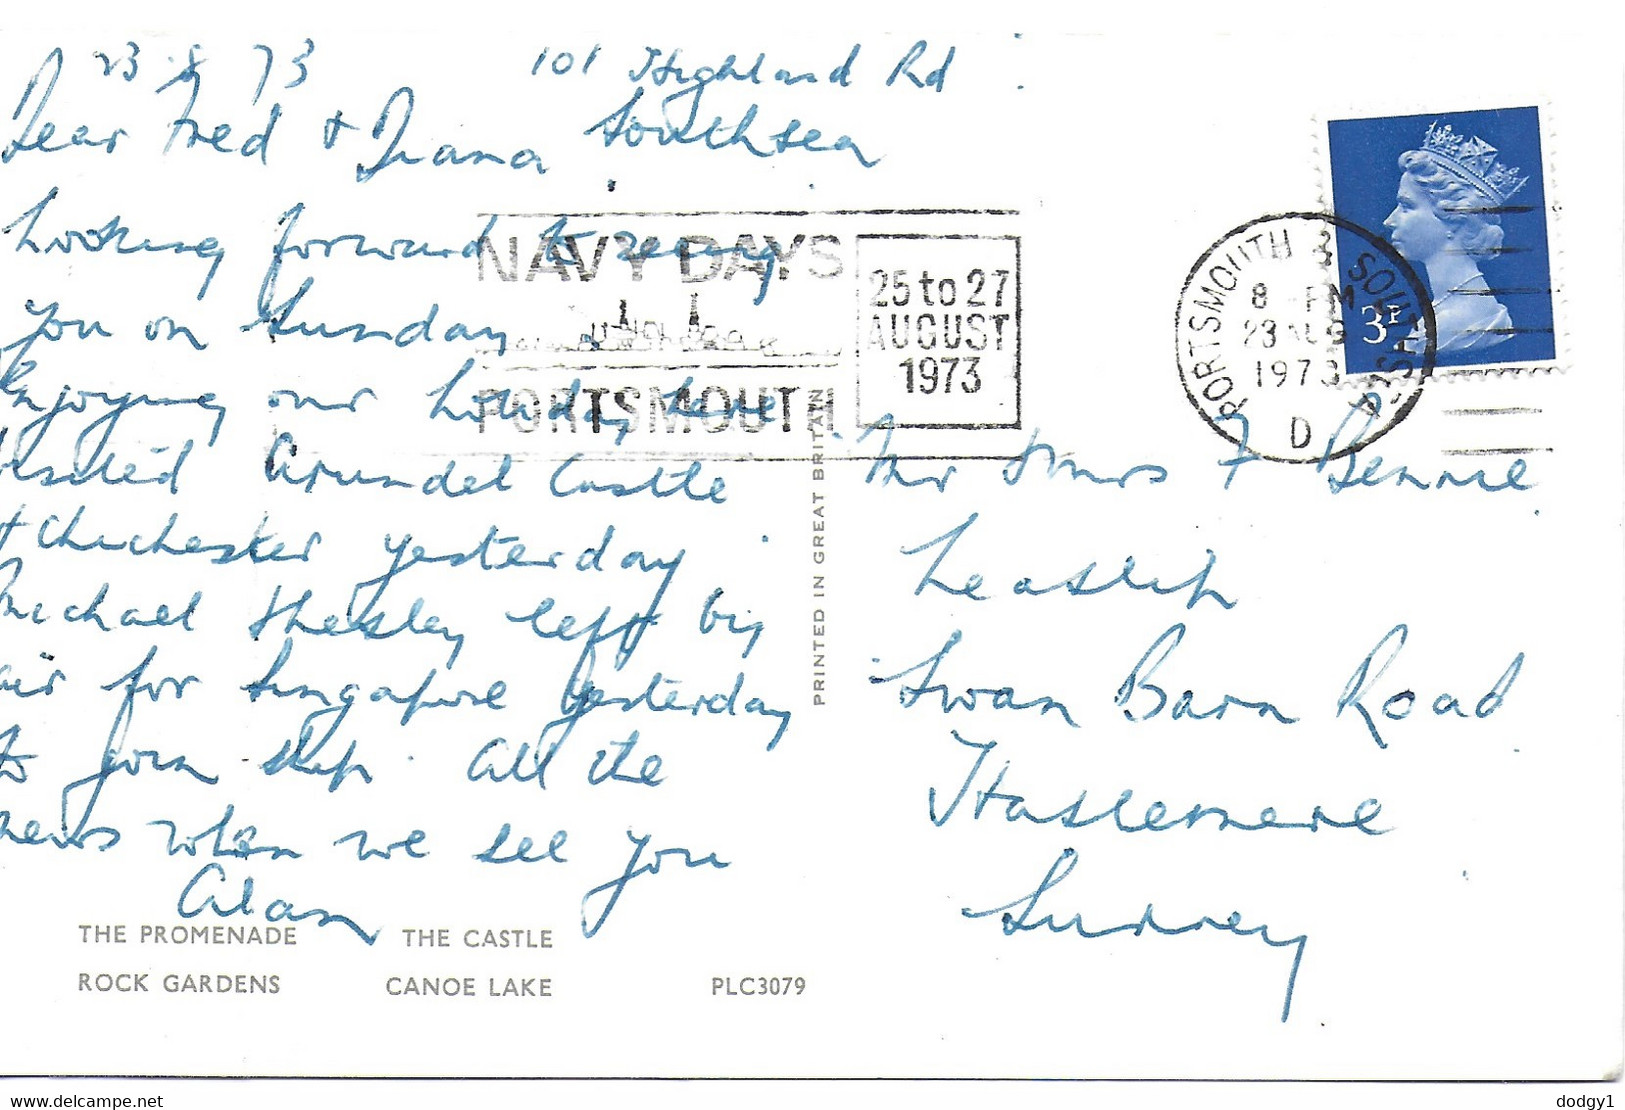 23.8.73
101 Highland Rd
Southsea
Dear Fred & Diana,
Looking forward to seeing
you on Sunday.
Enjoying our holiday here
Visited Arundel Castle
& Chichester yesterday.
Michael left by
air for Singapore yesterday
to join ship. All the
news when we see you
Alan
NAVY DAYS
PORTSMOUTH
25 to 27
AUGUST
1973
PORTSMOUTH & SOUTHSEA
8 PM
23 AUG
1973
D
3P
Mr & Mrs F Bennie
Leaslip
Swan Barn Road
Haslemere
Surrey
PRINTED IN GREAT BRITAIN
THE PROMENADE THE CASTLE
ROCK GARDENS CANOE LAKE PLC3079
delcampe.net
dodgy1